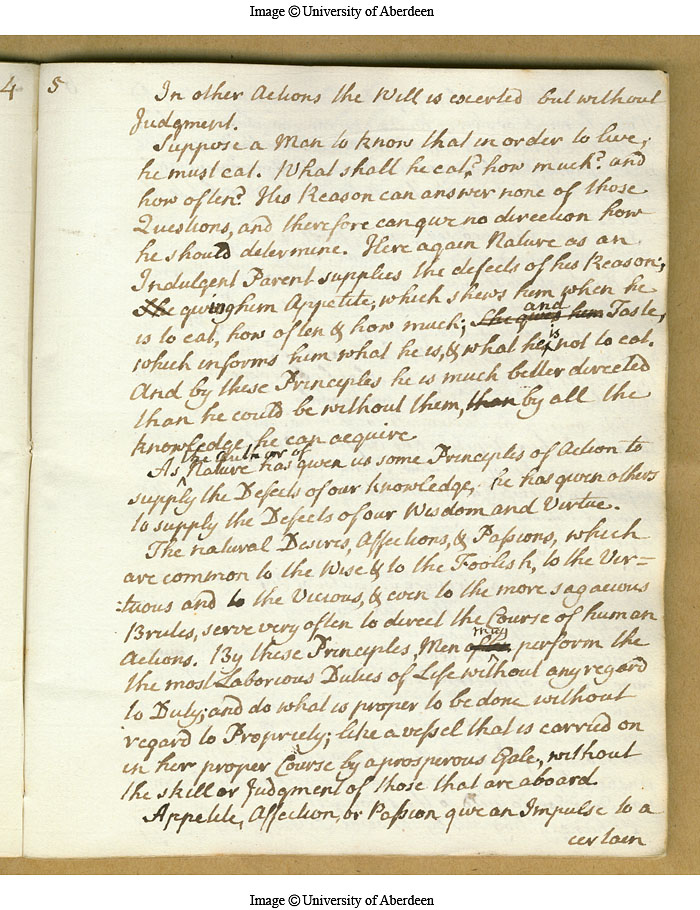 Image © University of Aberdeen
4 5
In other Actions the Will is exerted but without
Judgment.
Suppose a Man to know that in order to live,
he must eat. What shall he eat? how much? and
how often? His Reason can answer none of those
Questions, and therefore can give no direction how
he should determine. Here again Nature as an
Indulgent Parent supplies the defects of his Reason;
She giving him Appetite, which shews him when he
is to eat, how often & how much; She gives him and Taste,
which informs him what he is, & what he is not to eat.
And by these Principles he is much better directed
than he could be without them, than by all the
knowledge he can acquire
As the Author of Nature has given us some Principles of Action to
supply the Defects of our knowledge, he has given others
to supply the Defects of our Wisdom and Virtue.
The natural Desires, Affections, & Passions, which
are common to the Wise & to the Foolish, to the Vir=
=tuous and to the Vicious, & even to the more sagacious
Brutes, serve very often to direct the Course of human
Actions. By these Principles Men may perform the
the most Laborious Duties of Life without any regard
to Duty; and do what is proper to be done without
regard to Propriety; like a vessel that is carried on
in her proper Course by a prosperous Gale, without
the skill or Judgment of those that are aboard.
Appetite, Affection, or Passion give an Impulse to a
certain
Image © University of Aberdeen